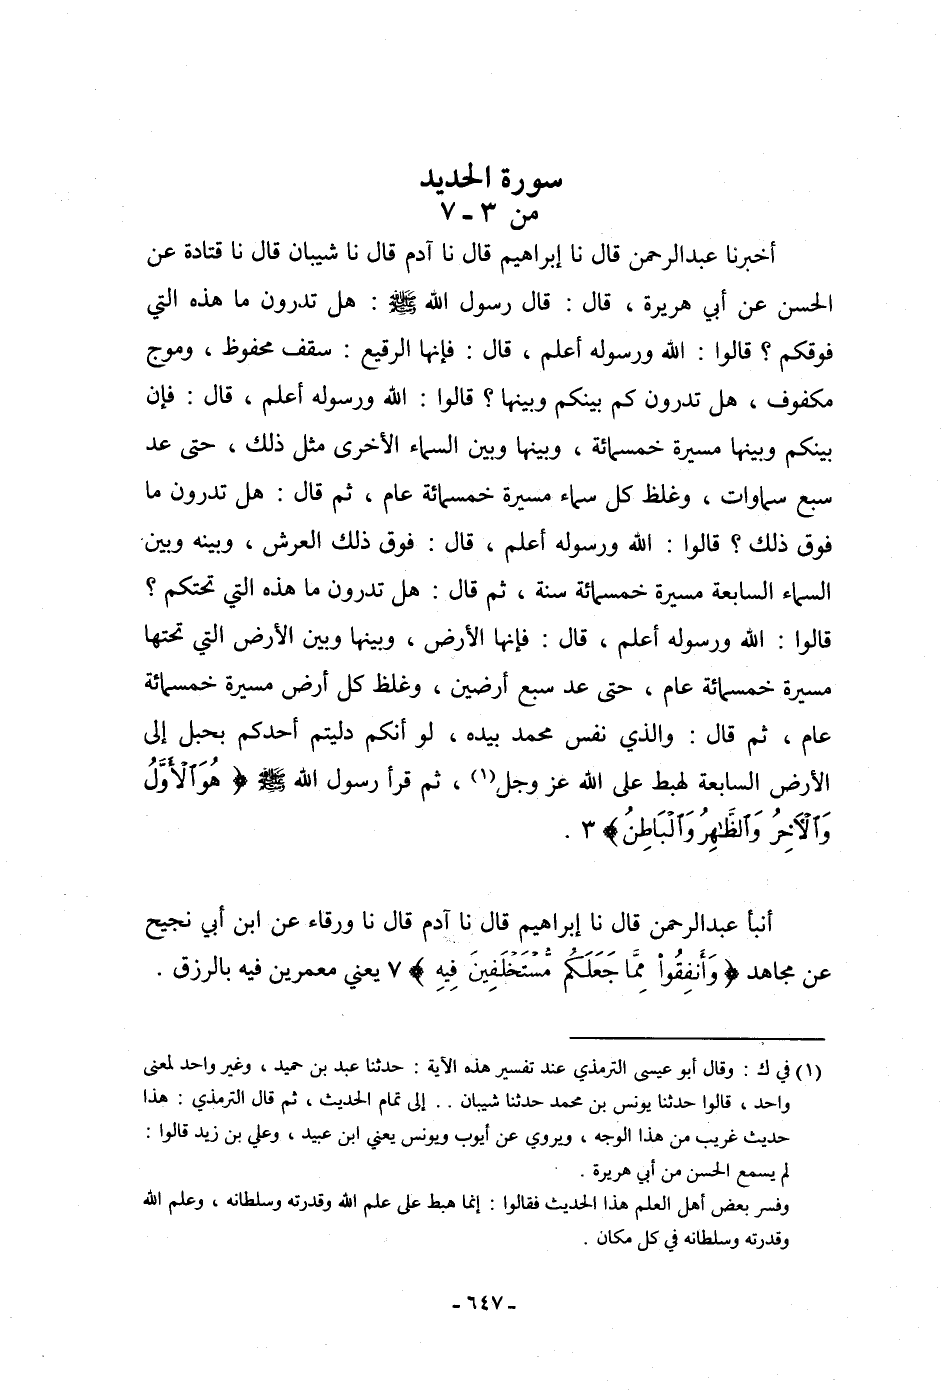 سورة الحديد
من ٣ ـ ٧
أخبرنا عبدالرحمن قال نا إبراهيم قال نا آدم قال نا شيبان قال نا قتادة عن
الحسن عن أبي هريرة ، قال : قال رسول الله ﷺ : هل تدرون ما هذه التي
فوقكم ؟ قالوا : الله ورسوله أعلم ، قال : فإنها الرقيع : سقف محفوظ ، وموج
مكفوف ، هل تدرون كم بينكم وبينها ؟ قالوا : الله ورسوله أعلم ، قال : فإن
بينكم وبينها مسيرة خمسمائة ، وبينها وبين السماء الأخرى مثل ذلك ، حتى عد
سبع سماوات ، وغلظ كل سماء مسيرة خمسمائة عام ، ثم قال : هل تدرون ما
فوق ذلك ؟ قالوا : الله ورسوله أعلم ، قال : فوق ذلك العرش ، وبينه وبين
السماء السابعة مسيرة خمسمائة سنة ، ثم قال : هل تدرون ما هذه التي تحتكم ؟
قالوا : الله ورسوله أعلم ، قال : فإنها الأرض ، وبينها وبين الأرض التي تحتها
مسيرة خمسمائة عام ، حتى عد سبع أرضين ، وغلظ كل أرض مسيرة خمسمائة
عام ، ثم قال : والذي نفس محمد بيده ، لو أنكم دليتم أحدكم بحبل إلى
الأرض السابعة لهبط على الله عز وجل(١) ، ثم قرأ رسول الله ﷺ ﴿ هُوَ ٱلْأَوَّلُ
وَٱلْآخِرُ وَٱلظَّٰهِرُ وَٱلْبَاطِنُ ﴾ ٣ .
أنبأ عبدالرحمن قال نا إبراهيم قال نا آدم قال نا ورقاء عن ابن أبي نجيح
عن مجاهد ﴿ وَأَنفِقُوا۟ مِمَّا جَعَلَكُم مُّسْتَخْلَفِينَ فِيهِ ﴾ ٧ يعني معمرين فيه بالرزق .
(١) في ك : وقال أبو عيسى الترمذي عند تفسير هذه الآية : حدثنا عبد بن حميد ، وغير واحد لمعنى
واحد ، قالوا حدثنا يونس بن محمد حدثنا شيبان . . إلى تمام الحديث ، ثم قال الترمذي : هذا
حديث غريب من هذا الوجه ، ويروي عن أيوب ويونس يعني ابن عبيد ، وعلي بن زيد قالوا :
لم يسمع الحسن من أبي هريرة .
وفسر بعض أهل العلم هذا الحديث فقالوا : إنما هبط على علم الله وقدرته وسلطانه ، وعلم الله
وقدرته وسلطانه في كل مكان .
ـ ٦٤٧ ـ